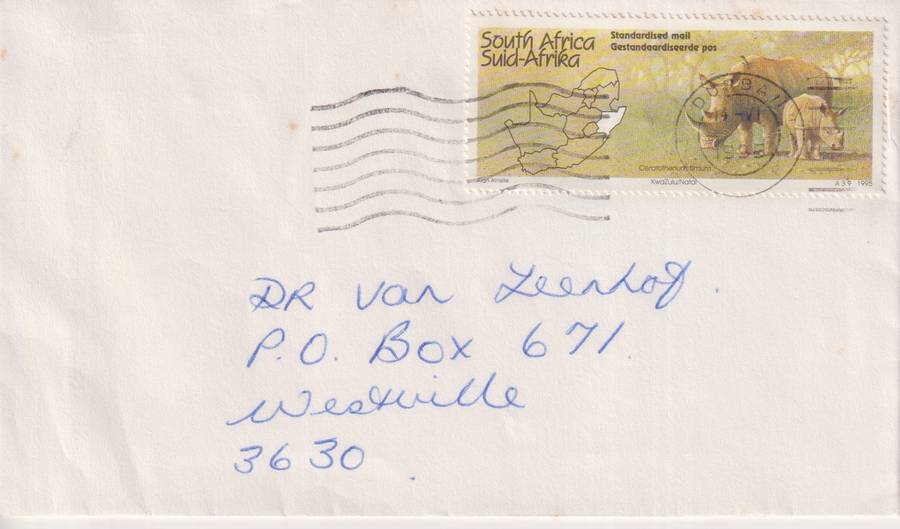 South Africa
Suid-Afrika
Standardised mail
Gestandaardiseerde pos
DURBAN
Ceratotherium simum
KwaZulu/Natal
A 3.9 1995
DR van Zeenhof.
P.O. Box 671.
Westville
3630